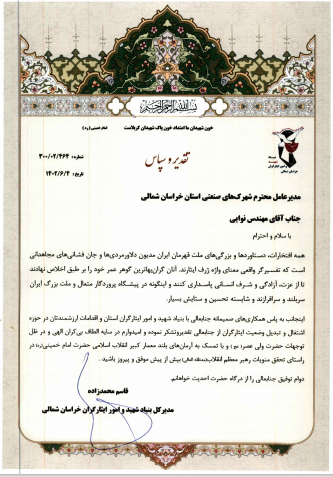 بسم الله الرحمن الرحیم
خون شهیدان ما امتداد خون پاک شهیدان کربلاست
امام خمینی (ره)
شماره: ۳۰۰/۰۲/۴۶۴
تاریخ: ۱۴۰۲/۶/۴
خراسان شمالی
تقدیر و سپاس
مدیرعامل محترم شهرک‌های صنعتی استان خراسان شمالی
جناب آقای مهندس نوایی
با سلام و احترام
همه افتخارات، دستاوردها و بزرگی‌های ملت قهرمان ایران مدیون دلاورمردی‌ها و جان فشانی‌های مجاهدانی
است که تفسیرگر واقعی معنای واژه ژرف ایثارند. آنان گران‌بهاترین گوهر عمر خود را بر طبق اخلاص نهادند
تا از عزت، آزادگی و شرف انسانی پاسداری کنند و اینگونه در پیشگاه پروردگار متعال و ملت بزرگ ایران
سربلند و سرافرازند و شایسته تحسین و ستایش بسیار.
اینجانب به پاس همکاری‌های صمیمانه جنابعالی با بنیاد شهید و امور ایثارگران استان و اقدامات ارزشمندتان در حوزه
اشتغال و تبدیل وضعیت ایثارگران از جنابعالی تقدیروتشکر نموده و امیدوارم در سایه الطاف بی‌کران الهی و در ظل
توجهات حضرت ولی عصر(عج) و با تمسک به آرمان‌های بلند معمار کبیر انقلاب اسلامی حضرت امام خمینی(ره) در
راستای تحقق منویات رهبر معظم انقلاب بیش از پیش موفق و پیروز باشید.
دوام توفیق جنابعالی را از درگاه حضرت احدیت خواهانم.
قاسم محمدزاده
مدیرکل بنیاد شهید و امور ایثارگران خراسان شمالی